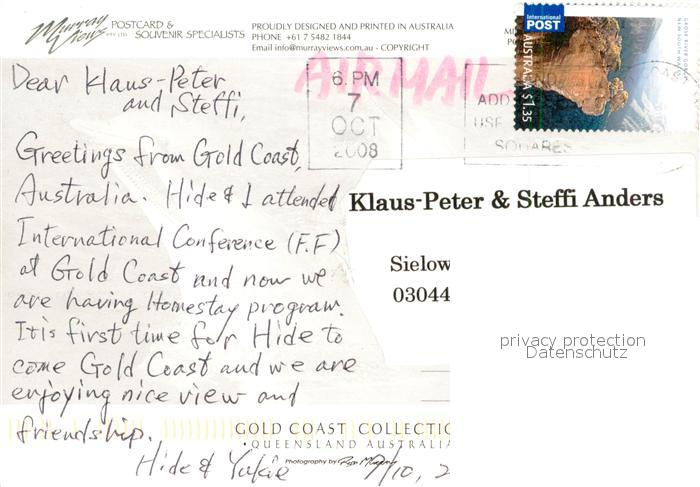 Murray Views PTY LTD
POSTCARD &
SOUVENIR SPECIALISTS
PROUDLY DESIGNED AND PRINTED IN AUSTRALIA
PHONE +61 7 5482 1844
Email info@murrayviews.com.au - COPYRIGHT
AIRMAIL
6. PM
7
OCT
2008
ADD
USE
SQUARES
International
POST
AUSTRALIA $1.35
Dear Klaus-Peter
and Steffi,
Greetings from Gold Coast,
Australia. Hide & I attended
International Conference (F.F)
at Gold Coast and now we
are having Homestay program.
It is first time for Hide to
come Gold Coast and we are
enjoying nice view and
friendship.
Hide & Yukie
7/10, 2
Klaus-Peter & Steffi Anders
Sielow
03044
privacy protection
Datenschutz
GOLD COAST COLLECTIO
• QUEENSLAND AUSTRALIA
Photography by Ron Murray